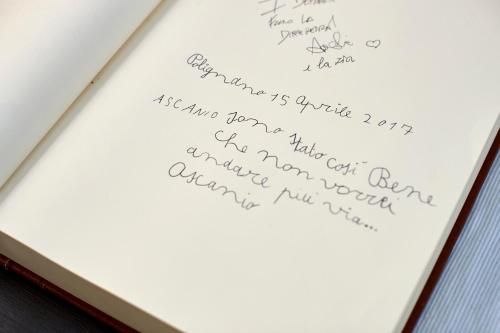 I DOLCI
FANO LA
DIFFERENZA
e la zia
Polignano 15 Aprile 2017
ASCANIO sono stato così Bene
che non vorrei
andare più via...
Ascanio